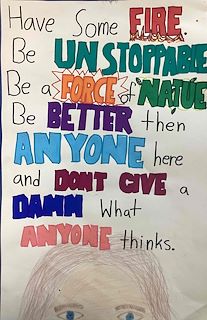 Have Some FIRE
Be UNSTOPPABLE
Be a FORCE of NATUE
Be BETTER then
ANYONE here
and DONT GIVE a
DAMN What
ANYONE thinks.